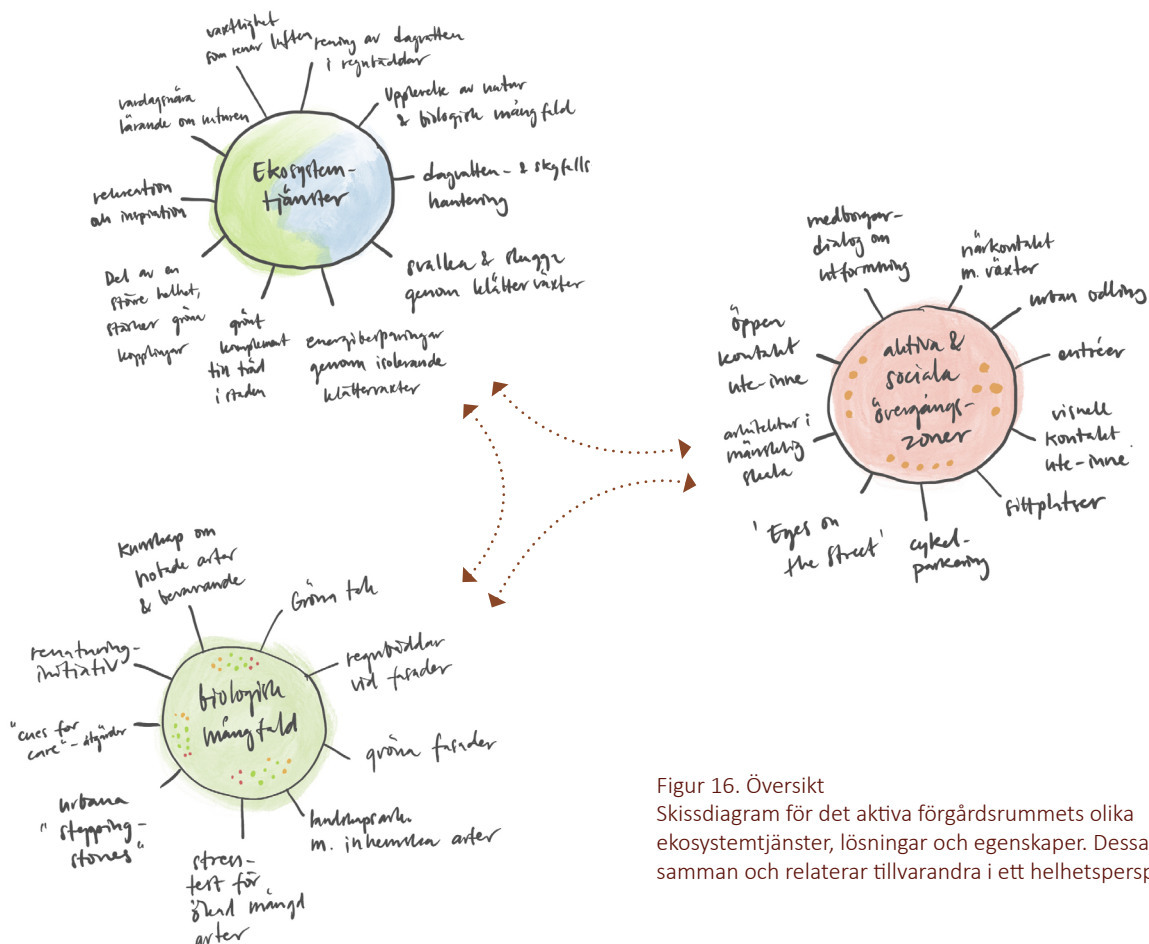 växtlighet
som renar luften
rening av dagvatten
i regnbäddar
Upplevelse av natur
& biologisk mångfald
dagvatten- & skyfalls
hantering
svalka & skugga
genom klätterväxter
energibesparingar
genom isolerande
klätterväxter
grönt
komplement
till träd
i staden
Del av en
större helhet,
stärker gröna
kopplingar
rekreation
och inspiration
vardagsnära
lärande om naturen
Ekosystem-
tjänster
medborgar-
dialog om
utformning
närkontakt
m. växter
urban odling
entréer
visuell
kontakt
ute-inne
sittplatser
cykel-
parkering
'Eyes on
the street'
arkitektur i
mänsklig
skala
öppen
kontakt
ute-inne
aktiva &
sociala
övergångs-
zoner
kunskap om
hotade arter
& bevarande
Gröna tak
regnbäddar
vid fasader
gröna fasader
landskapsark.
m. inhemska arter
stress-
test för
ökad mängd
arter
urbana
"stepping-
stones"
"cues for
care"-åtgärder
renaturing-
initiativ
biologisk
mångfald
Figur 16. Översikt
Skissdiagram för det aktiva förgårdsrummets olika
ekosystemtjänster, lösningar och egenskaper. Dessa
samman och relaterar tillvarandra i ett helhetspersp